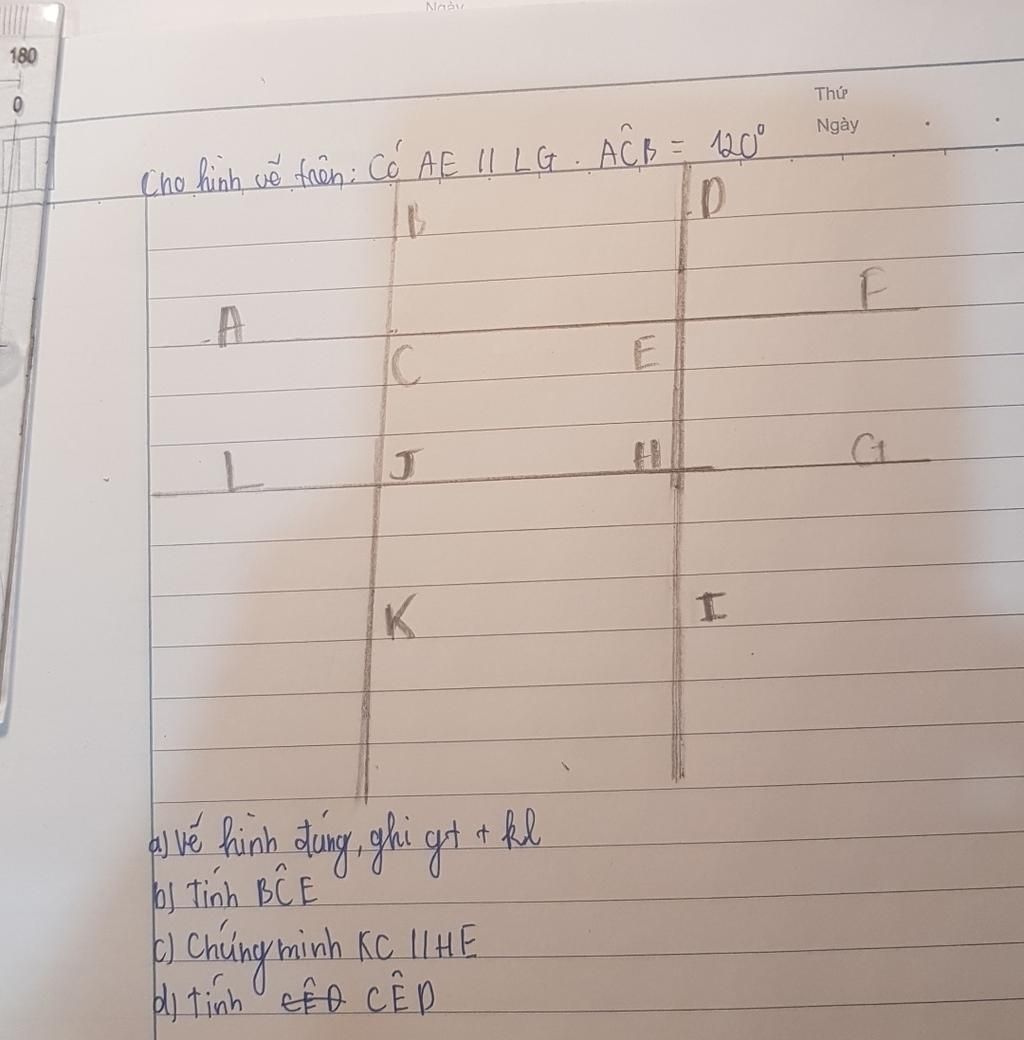 Ngày
180
0
Thứ
Ngày
Cho hình vẽ trên: Có AE // LG. AĈB = 120°
B
D
A
F
C
E
L
J
H
G
K
I
a) Vẽ hình đúng, ghi gt + kl
b) Tính BĈE
c) Chứng minh KC // HE
d) tính CÊD